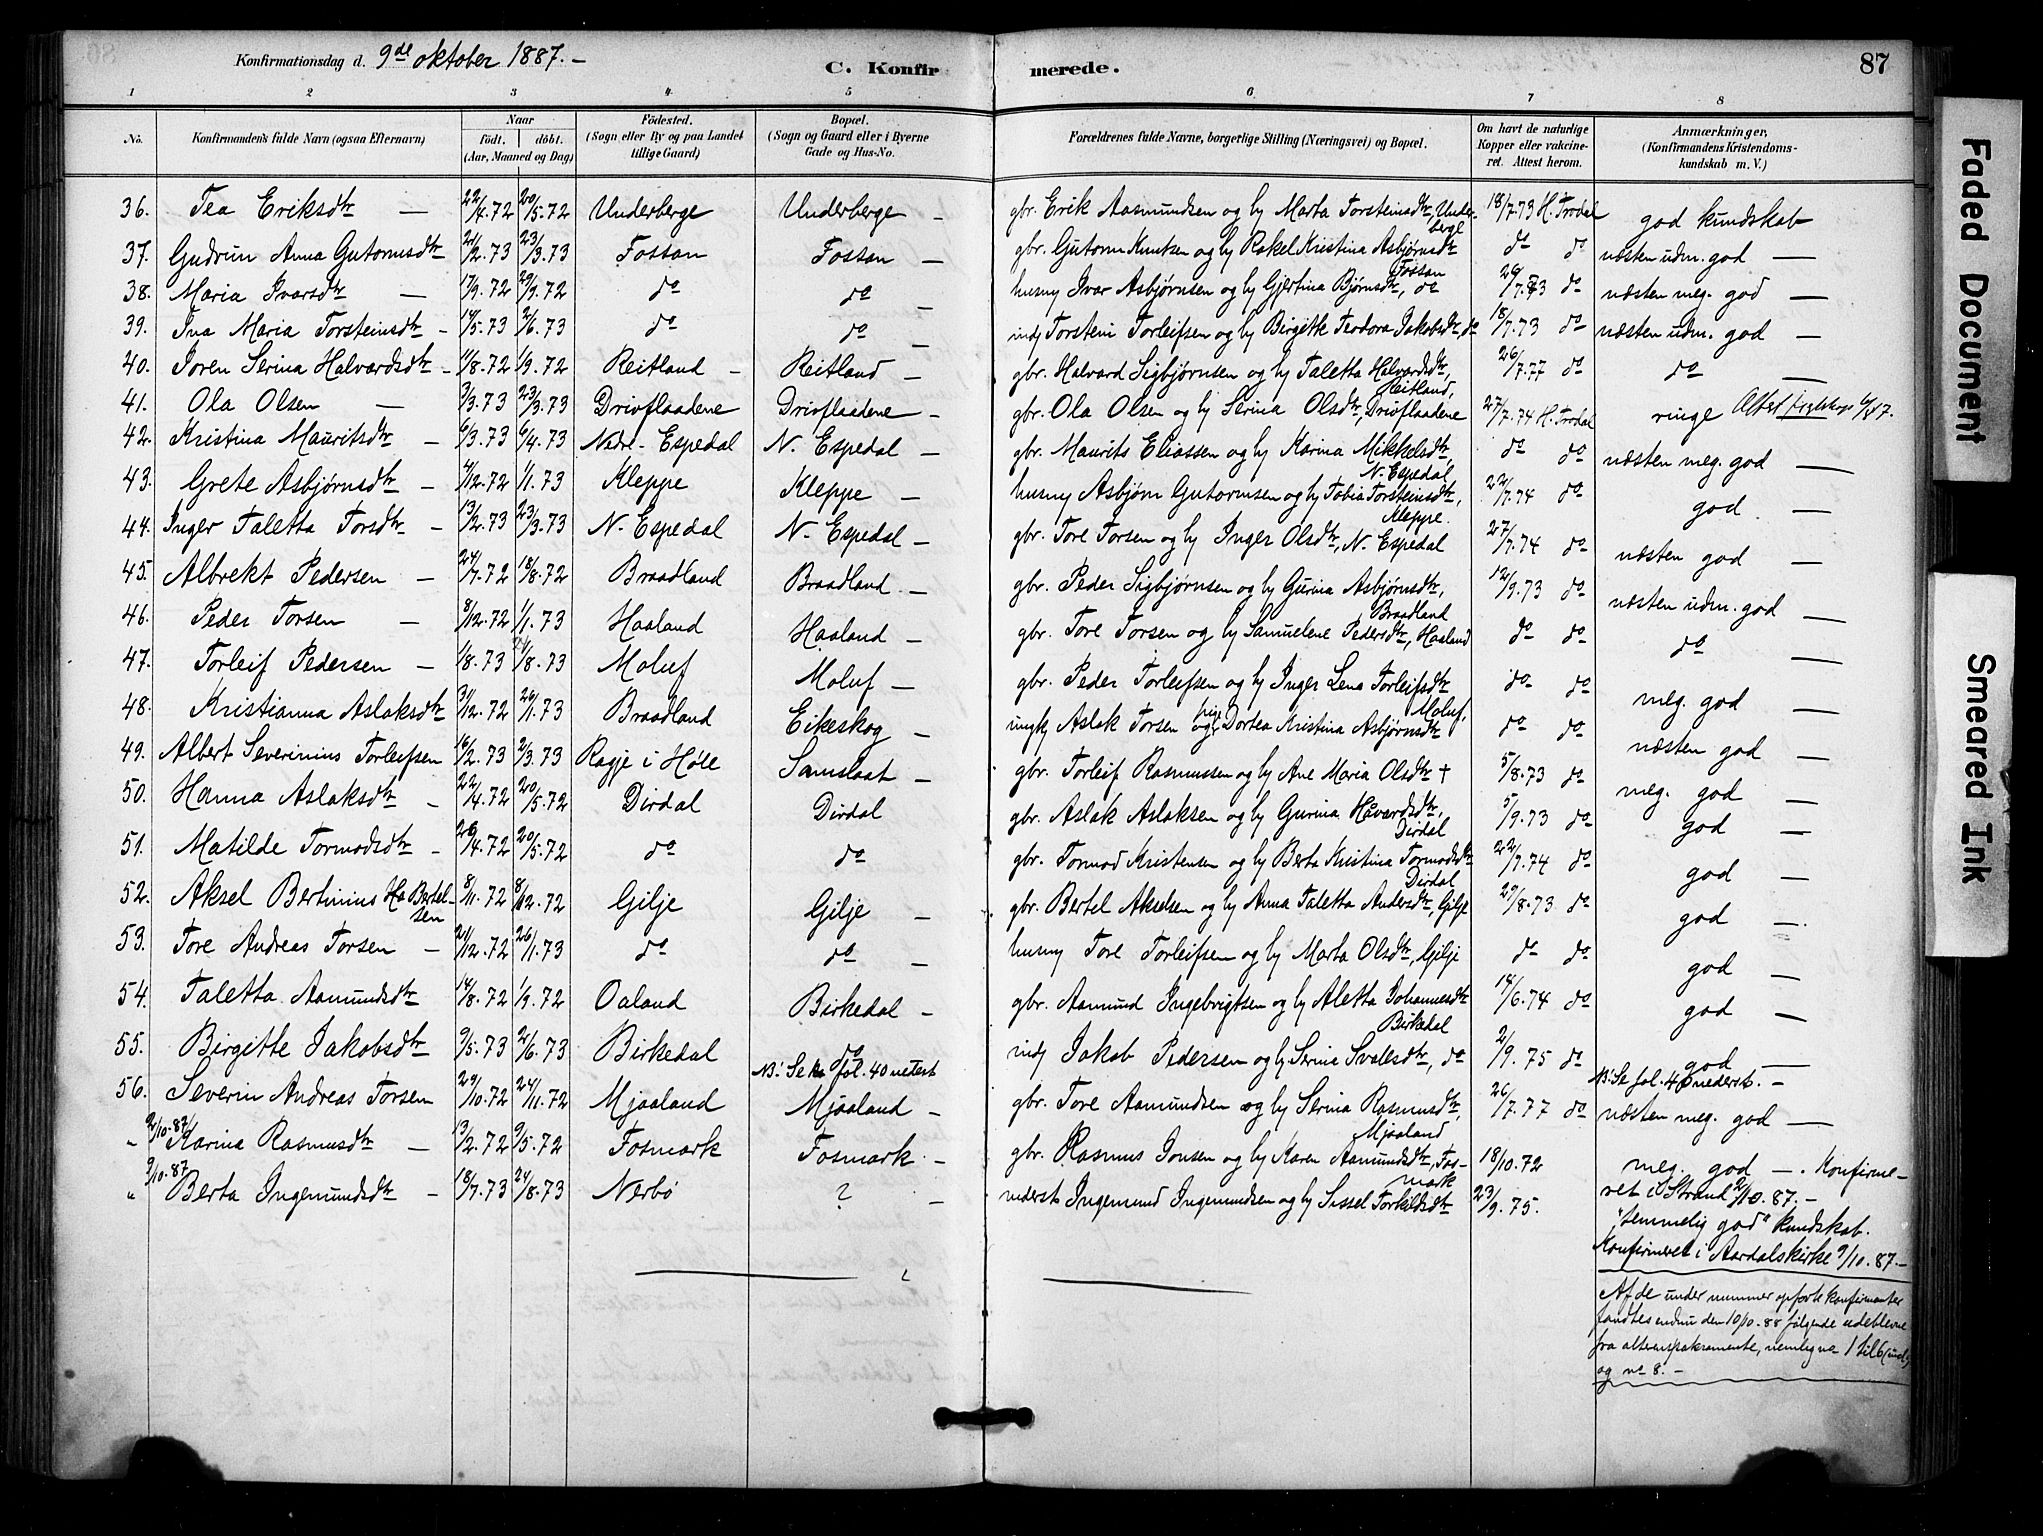 Konfirmationsdag d. 9de oktober 1887.-
C. Konfirmerede.
87
1 2 3 4 5 6 7 8
No. Konfirmandens fulde Navn (ogsaa Efternavn) Naar födt. döbt. (Aar, Maaned og Dag) Födested. (Sogn eller By og paa Landet tillige Gaard) Bopæl. (Sogn og Gaard eller i Byerne Gade og Hus-No. Forældrenes fulde Navne, borgerlige Stilling (Næringsvei) og Bopæl. Om havt de naturlige Kopper eller vakcineret. Attest herom. Anmærkninger, (Konfirmandens Kristendomskundskab m. V.)
36. Tea Eriksdtr — 22/4.72 20/5.72 Underberge Underberge – gbr. Erik Aasmundsen og hy Marta Torsteinsdtr, Underberge 18/7.73 H. Trodal god kundskab
37. Gudrun Anna Gutormsdtr 21/2.73 23/3.73 Fossan Fossan – gbr. Gutorm Knutsen og hy Rakel Kristina Asbjørnsdtr Fossan do do næsten udm. god —
38. Maria Ivarsdtr — 17/9.72 29/9.72 do do – husmg Ivar Asbjørnsen og hy Gjertina Bjørnsdtr, do do næsten meg. god —
39. Ina Maria Torsteinsdtr – 14/5.73 2/6.73 do do – indj Torstein Torleifsen og hy Birgitte Teodora Jakobsdtr, do 18/7.73 do næsten udm. god —
40. Joren Serina Halvardsdtr – 11/8.72 1/9.72 Reitland – Reitland – gbr. Halvard Sigbjørnsen og hy Taletta Halvardsdtr, Reitland, 26/7.77 do do —
41. Ola Olsen — 3/3.73 23/3.73 Drivflaadene Drivflaadene – gbr. Ola Olsen og hy Serina Olsdtr, Drivflaadene 27/7.74 H. Trodal ringe
42. Kristina Mauritsdtr – 6/3.73 6/4.73 Nedre-Espedal N. Espedal – gbr. Maurits Eliassen og hy Karina Mikkelsdtr, N. Espedal do do næsten meg. god —
43. Grete Asbjørnsdtr – 4/12.72 1/1.73 Kleppe Kleppe – husmg Asbjørn Gutormsen og hy Tobia Torsteinsdtr, Kleppe. 22/7.74 do god. —
44. Inger Taletta Torsdtr – 13/2.73 23/3.73 N. Espedal N. Espedal – gbr. Tore Torsen og hy Inger Olsdtr, N. Espedal 27/7.74 do næsten god —
45. Albrekt Pedersen – 24/7.72 18/8.72 Braadland Braadland. – gbr. Peder Sigbjørnsen og hy Gurina Asbjørnsdtr, Braadland 12/9.73 do næsten udm. god —
46. Peder Torsen — 8/12.72 1/1.73 Haaland Haaland – gbr. Tore Torsen og hy Samuelene Pedersdtr, Haaland do do do —
47. Torleif Pedersen – 1/8.73 24/8.73 Moluf Moluf – gbr. Peder Torleifsen og hy Inger Lena Torleifsdtr Moluf, do do meg. god —
48. Kristianna Aslaksdtr 31/12.72 26/1.73 Braadland Eikeskog – ungk Aslak Torsen og pige Dortea Kristina Asbjørnsdtr do do næsten god —
49. Albert Severinius Torleifsen 16/2.73 2/3.73 Ragje i Høle Samslaat – gbr. Torleif Rasmussen og hy Ane Maria Olsdtr † 5/8.73 do meg. god —
50. Hanna Aslaksdtr – 22/4.72 20/5.72 Dirdal Dirdal gbr. Aslak Aslaksen og hy Gurina Havardsdtr, Dirdal 5/9.73 do god —
51. Matilde Tormodsdtr – 26/4.72 20/5.72 do do gbr. Tormod Kristensen og hy Berta Kristina Tormodsdtr Dirdal 22/7.74 do god —
52. Aksel Bertinius Bertelsen 8/11.72 8/12.72 Gilje Gilje – gbr. Bertel Akselsen og hy Anna Taletta Andersdtr, Gilje 29/8.73 do god —
53. Tore Andreas Torsen – 21/12.72 26/1.73 do do – husmg Tore Torleifsen og hy Marta Olsdtr, Gilje do do god —
54. Taletta Aamundsdtr 14/8.72 1/9.72 Oaland Birkedal – gbr. Aamund Ingebrigtsen og hy Aletta Johannesdtr Birkedal 14/6.74 do god —
55. Birgitte Jakobsdtr 9/5.73 2/6.73 Birkedal do indj Jakob Pedersen og hy Serina Svalesdtr, do 2/9.75 do god —
NB: Se fol. 40 nederst
NB: Se fol. 40 nederst. –
56. Severin Andreas Torsen 29/10.72 24/11.72 Mjaaland Mjaaland – gbr. Tore Aamundsen og hy Serina Rasmusdtr, Mjaaland 26/7.77 do næsten meg. god —
" 2/10.87 Karina Rasmusdtr – 13/2.72 9/5.72 Fosmark Fosmark – gbr. Rasmus Jonsen og hy Karen Aamundsdtr, Fosmark 18/10.72 meg. god —. Konfirmeret i Strand 2/10.87.–
" 9/10.87 Berta Ingemundsdtr – 18/7.73 24/8.73 Nerbø ? – inderst Ingemund Ingemundsen og hy Sissel Torkildsdtr 23/9.75. "temmelig god" kundskab.
Konfirmeret i Aardalskirke 9/10.87.–
Af de under nummer opførte konfirmanter
fandtes endnu den 10/10-88 følgende udeblevne
fra altersakramente, nemlig no 1 til 6 (incl.)
og no 8. –
Faded Document
Smeared Ink